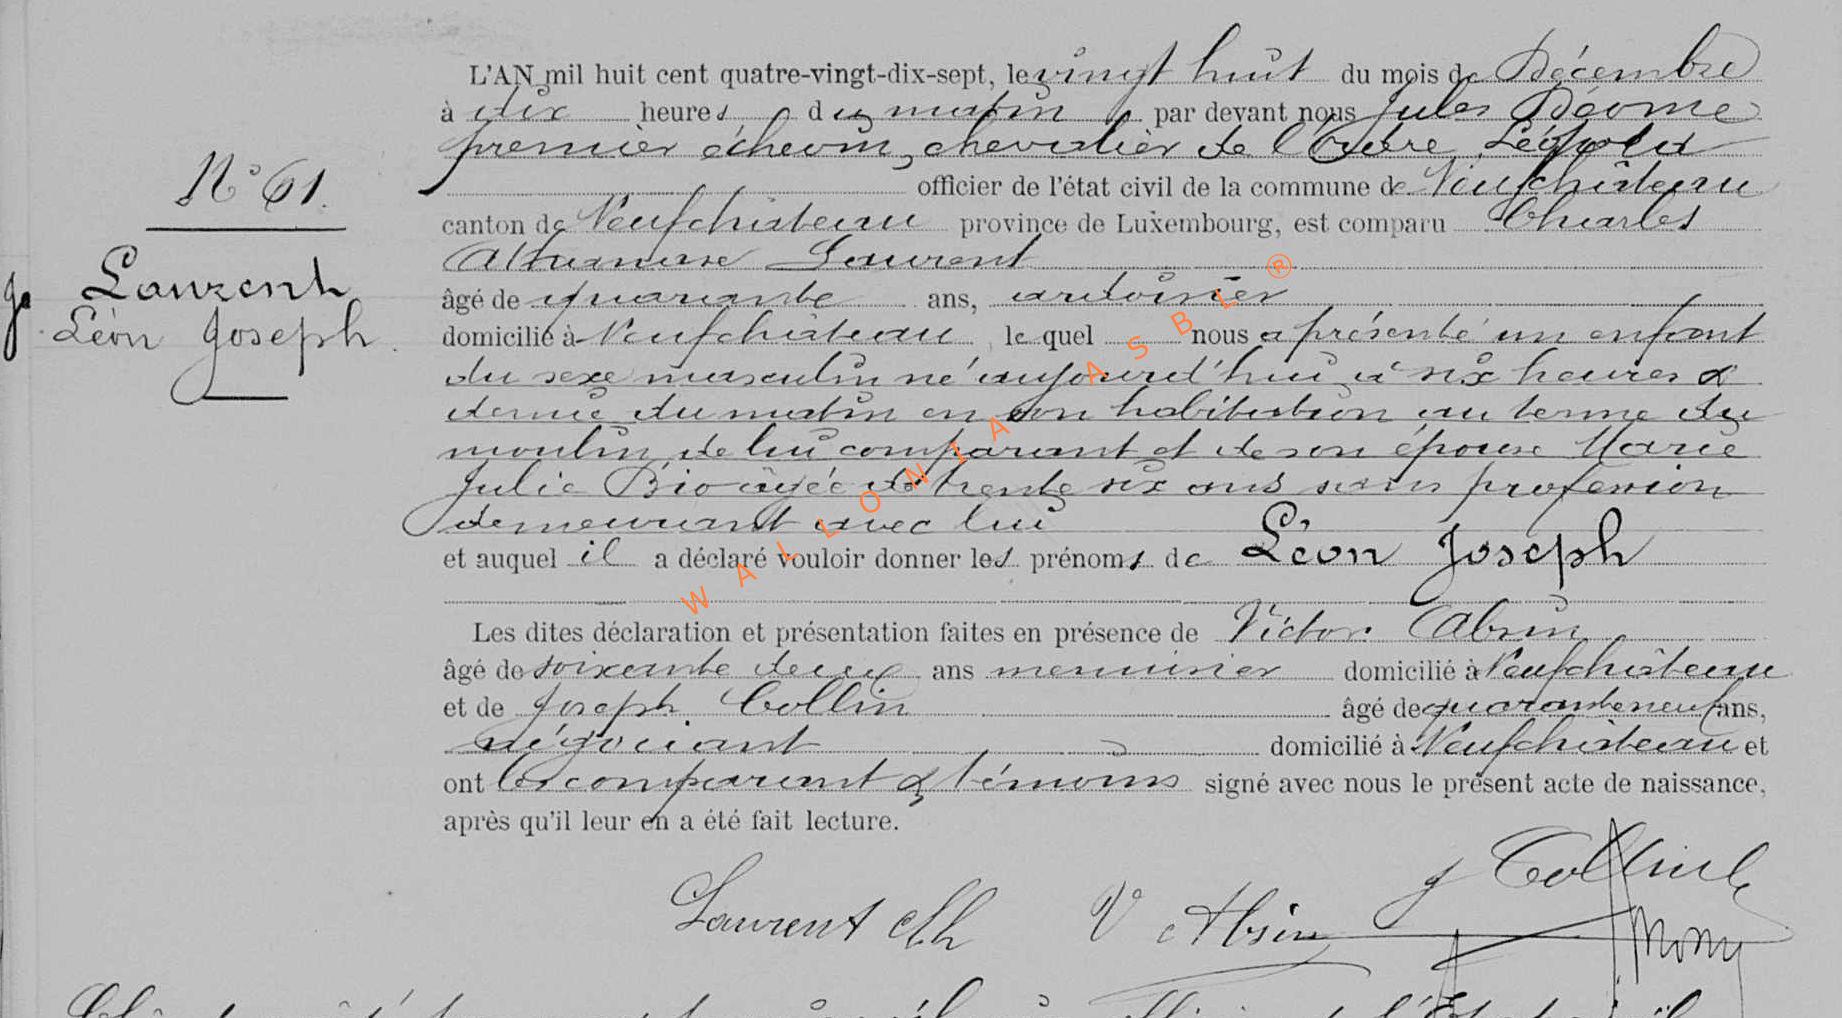 L'AN mil huit cent quatre-vingt-dix-sept, le vingt huit du mois de Décembre
à dix heures du matin par devant nous Jules Déome
premier échevin, chevalier de l'Ordre Léopold
N° 61.
officier de l'état civil de la commune de Neufchâteau
canton de Neufchâteau province de Luxembourg, est comparu Charles
Laurent
Léon Joseph
Athanase Laurent
âgé de quarante ans, ardoisier
domicilié à Neufchâteau le quel nous a présenté un enfant
du sexe masculin né aujourd'hui à six heures &
demie du matin en son habitation au terme du
moulin de lui comparant et de son épouse Marie
Julie Bio âgée de trente six ans sans profession
demeurant avec lui
et auquel il a déclaré vouloir donner les prénoms de Léon Joseph
Les dites déclaration et présentation faites en présence de Victor Absin
âgé de soixante deux ans menuisier domicilié à Neufchâteau
et de Joseph Collin âgé de quarante neuf ans,
négociant domicilié à Neufchâteau et
ont les comparant & témoins signé avec nous le présent acte de naissance,
après qu'il leur en a été fait lecture.
Laurent Ch V Absin J Collin
WALLONIA ASBL ®